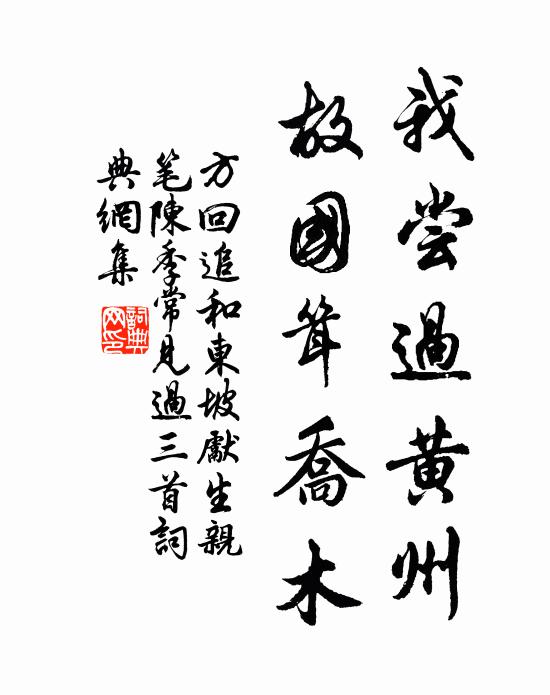 我尝過黄州
故國耸喬木
方回追和東坡獻生親
笔陳季常見過三首詞
典網集
詞典网印